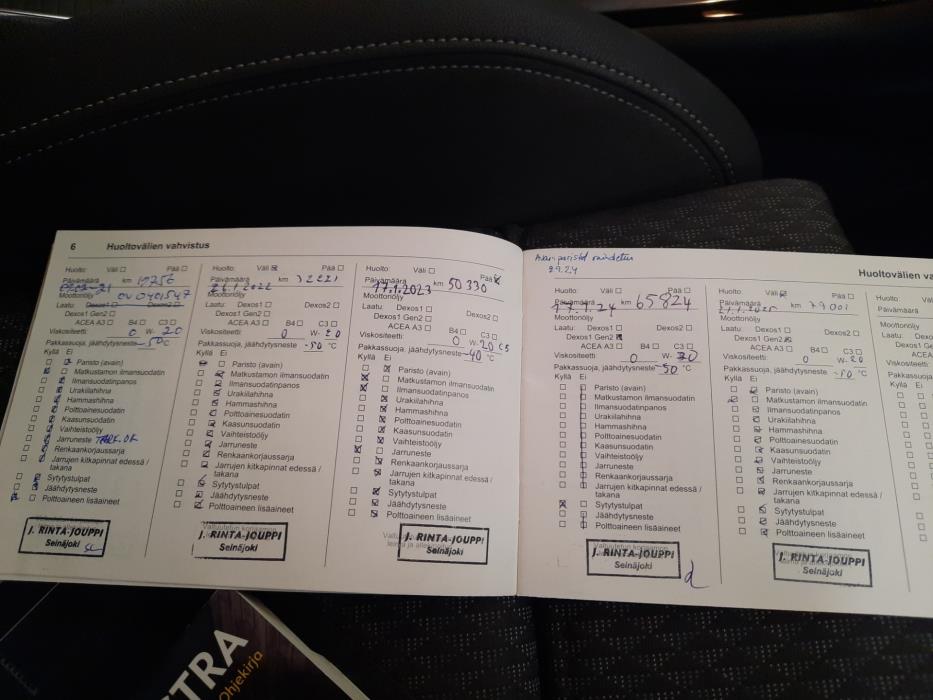 6 Huoltovälien vahvistus
Huolto: Väli ☐ Pää ☐
Päivämäärä km
Moottoriöljy OV0401547
Laatu: Dexos1 ☐ Dexos2 ☐
Dexos1 Gen2 ☐
ACEA A3 ☐ B4 ☐ C3 ☐
Viskositeetti 0 W- 20
Pakkassuoja, jäähdytysneste -50 °C
Kyllä Ei
Paristo (avain)
Matkustamon ilmansuodatin
Ilmansuodatinpanos
Urakiilahihna
Hammashihna
Polttoainesuodatin
Kaasunsuodatin
Vaihteistoöljy
Jarruneste TARK.OK
Renkaankorjaussarja
Jarrujen kitkapinnat edessä /
takana
Sytytystulpat
Jäähdytysneste
Polttoaineen lisäaineet
J. RINTA-JOUPPI
Seinäjoki
Huolto: Väli ☒ Pää ☐
Päivämäärä km 32221
Moottoriöljy
Laatu: Dexos1 ☐ Dexos2 ☐
Dexos1 Gen2 ☐
ACEA A3 ☐ B4 ☐ C3 ☐
Viskositeetti 0 W- 20
Pakkassuoja, jäähdytysneste -50 °C
Kyllä Ei
Paristo (avain)
Matkustamon ilmansuodatin
Ilmansuodatinpanos
Urakiilahihna
Hammashihna
Polttoainesuodatin
Kaasunsuodatin
Vaihteistoöljy
Jarruneste
Renkaankorjaussarja
Jarrujen kitkapinnat edessä /
takana
Sytytystulpat
Jäähdytysneste
Polttoaineen lisäaineet
J. RINTA-JOUPPI
Seinäjoki
Huolto: Väli ☐ Pää ☒
Päivämäärä 17.1.2023 km 50330
Moottoriöljy
Laatu: Dexos1 ☐ Dexos2 ☐
Dexos1 Gen2 ☐
ACEA A3 ☐ B4 ☐ C3 ☐
Viskositeetti 0 W- 20 C5
Pakkassuoja, jäähdytysneste -40 °C
Kyllä Ei
Paristo (avain)
Matkustamon ilmansuodatin
Ilmansuodatinpanos
Urakiilahihna
Hammashihna
Polttoainesuodatin
Kaasunsuodatin
Vaihteistoöljy
Jarruneste
Renkaankorjaussarja
Jarrujen kitkapinnat edessä /
takana
Sytytystulpat
Jäähdytysneste
Polttoaineen lisäaineet
J. RINTA-JOUPPI
Seinäjoki
Huoltovälien va
Huolto: Väli ☐ Pää ☐
Päivämäärä 17.1.24 km 65824
Moottoriöljy
Laatu: Dexos1 ☐ Dexos2 ☐
Dexos1 Gen2 ☒
ACEA A3 ☐ B4 ☐ C3 ☐
Viskositeetti 0 W-
Pakkassuoja, jäähdytysneste -50 °C
Kyllä Ei
Paristo (avain)
Matkustamon ilmansuodatin
Ilmansuodatinpanos
Urakiilahihna
Hammashihna
Polttoainesuodatin
Kaasunsuodatin
Vaihteistoöljy
Jarruneste
Renkaankorjaussarja
Jarrujen kitkapinnat edessä /
takana
Sytytystulpat
Jäähdytysneste
Polttoaineen lisäaineet
J. RINTA-JOUPPI
Seinäjoki
Huolto: Väli ☒ Pää ☐
Päivämäärä km 79001
Moottoriöljy
Laatu: Dexos1 ☐ Dexos2 ☐
Dexos1 Gen2 ☒
ACEA A3 ☐ B4 ☐ C3 ☐
Viskositeetti 0 W- 20
Pakkassuoja, jäähdytysneste °C
Kyllä Ei
Paristo (avain)
Matkustamon ilmansuodatin
Ilmansuodatinpanos
Urakiilahihna
Hammashihna
Polttoainesuodatin
Kaasunsuodatin
Vaihteistoöljy
Jarruneste
Renkaankorjaussarja
Jarrujen kitkapinnat edessä /
takana
Sytytystulpat
Jäähdytysneste
Polttoaineen lisäaineet
J. RINTA-JOUPPI
Seinäjoki
Huolto: Väli
Päivämäärä
Moottoriöljy
Laatu: Dexos
Dexos1 G
ACEA
Viskositeetti
Pakkassuoja,
Kyllä Ei
TRA
Ohjekirja